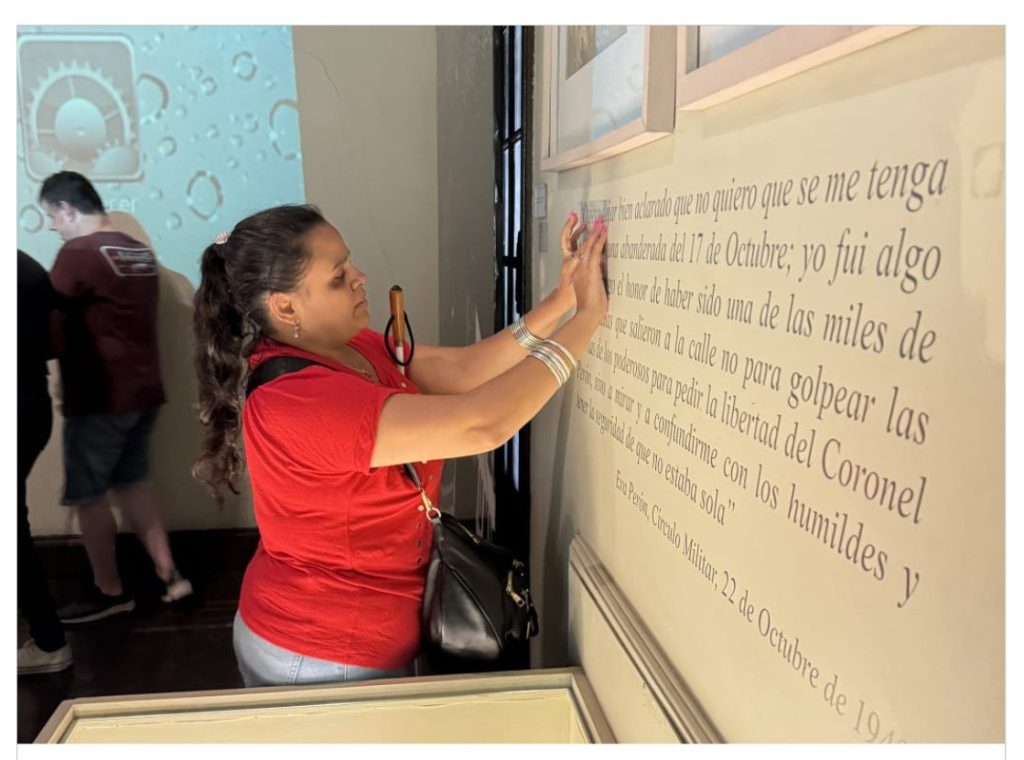 bien aclarado que no quiero que se me tenga
abanderada del 17 de Octubre; yo fui algo
el honor de haber sido una de las miles de
que salieron a la calle no para golpear las
de los poderosos para pedir la libertad del Coronel
Perón, a mirar y a confundirme con los humildes y
tener la seguridad de que no estaba sola"
Eva Perón, Círculo Militar, 22 de Octubre de